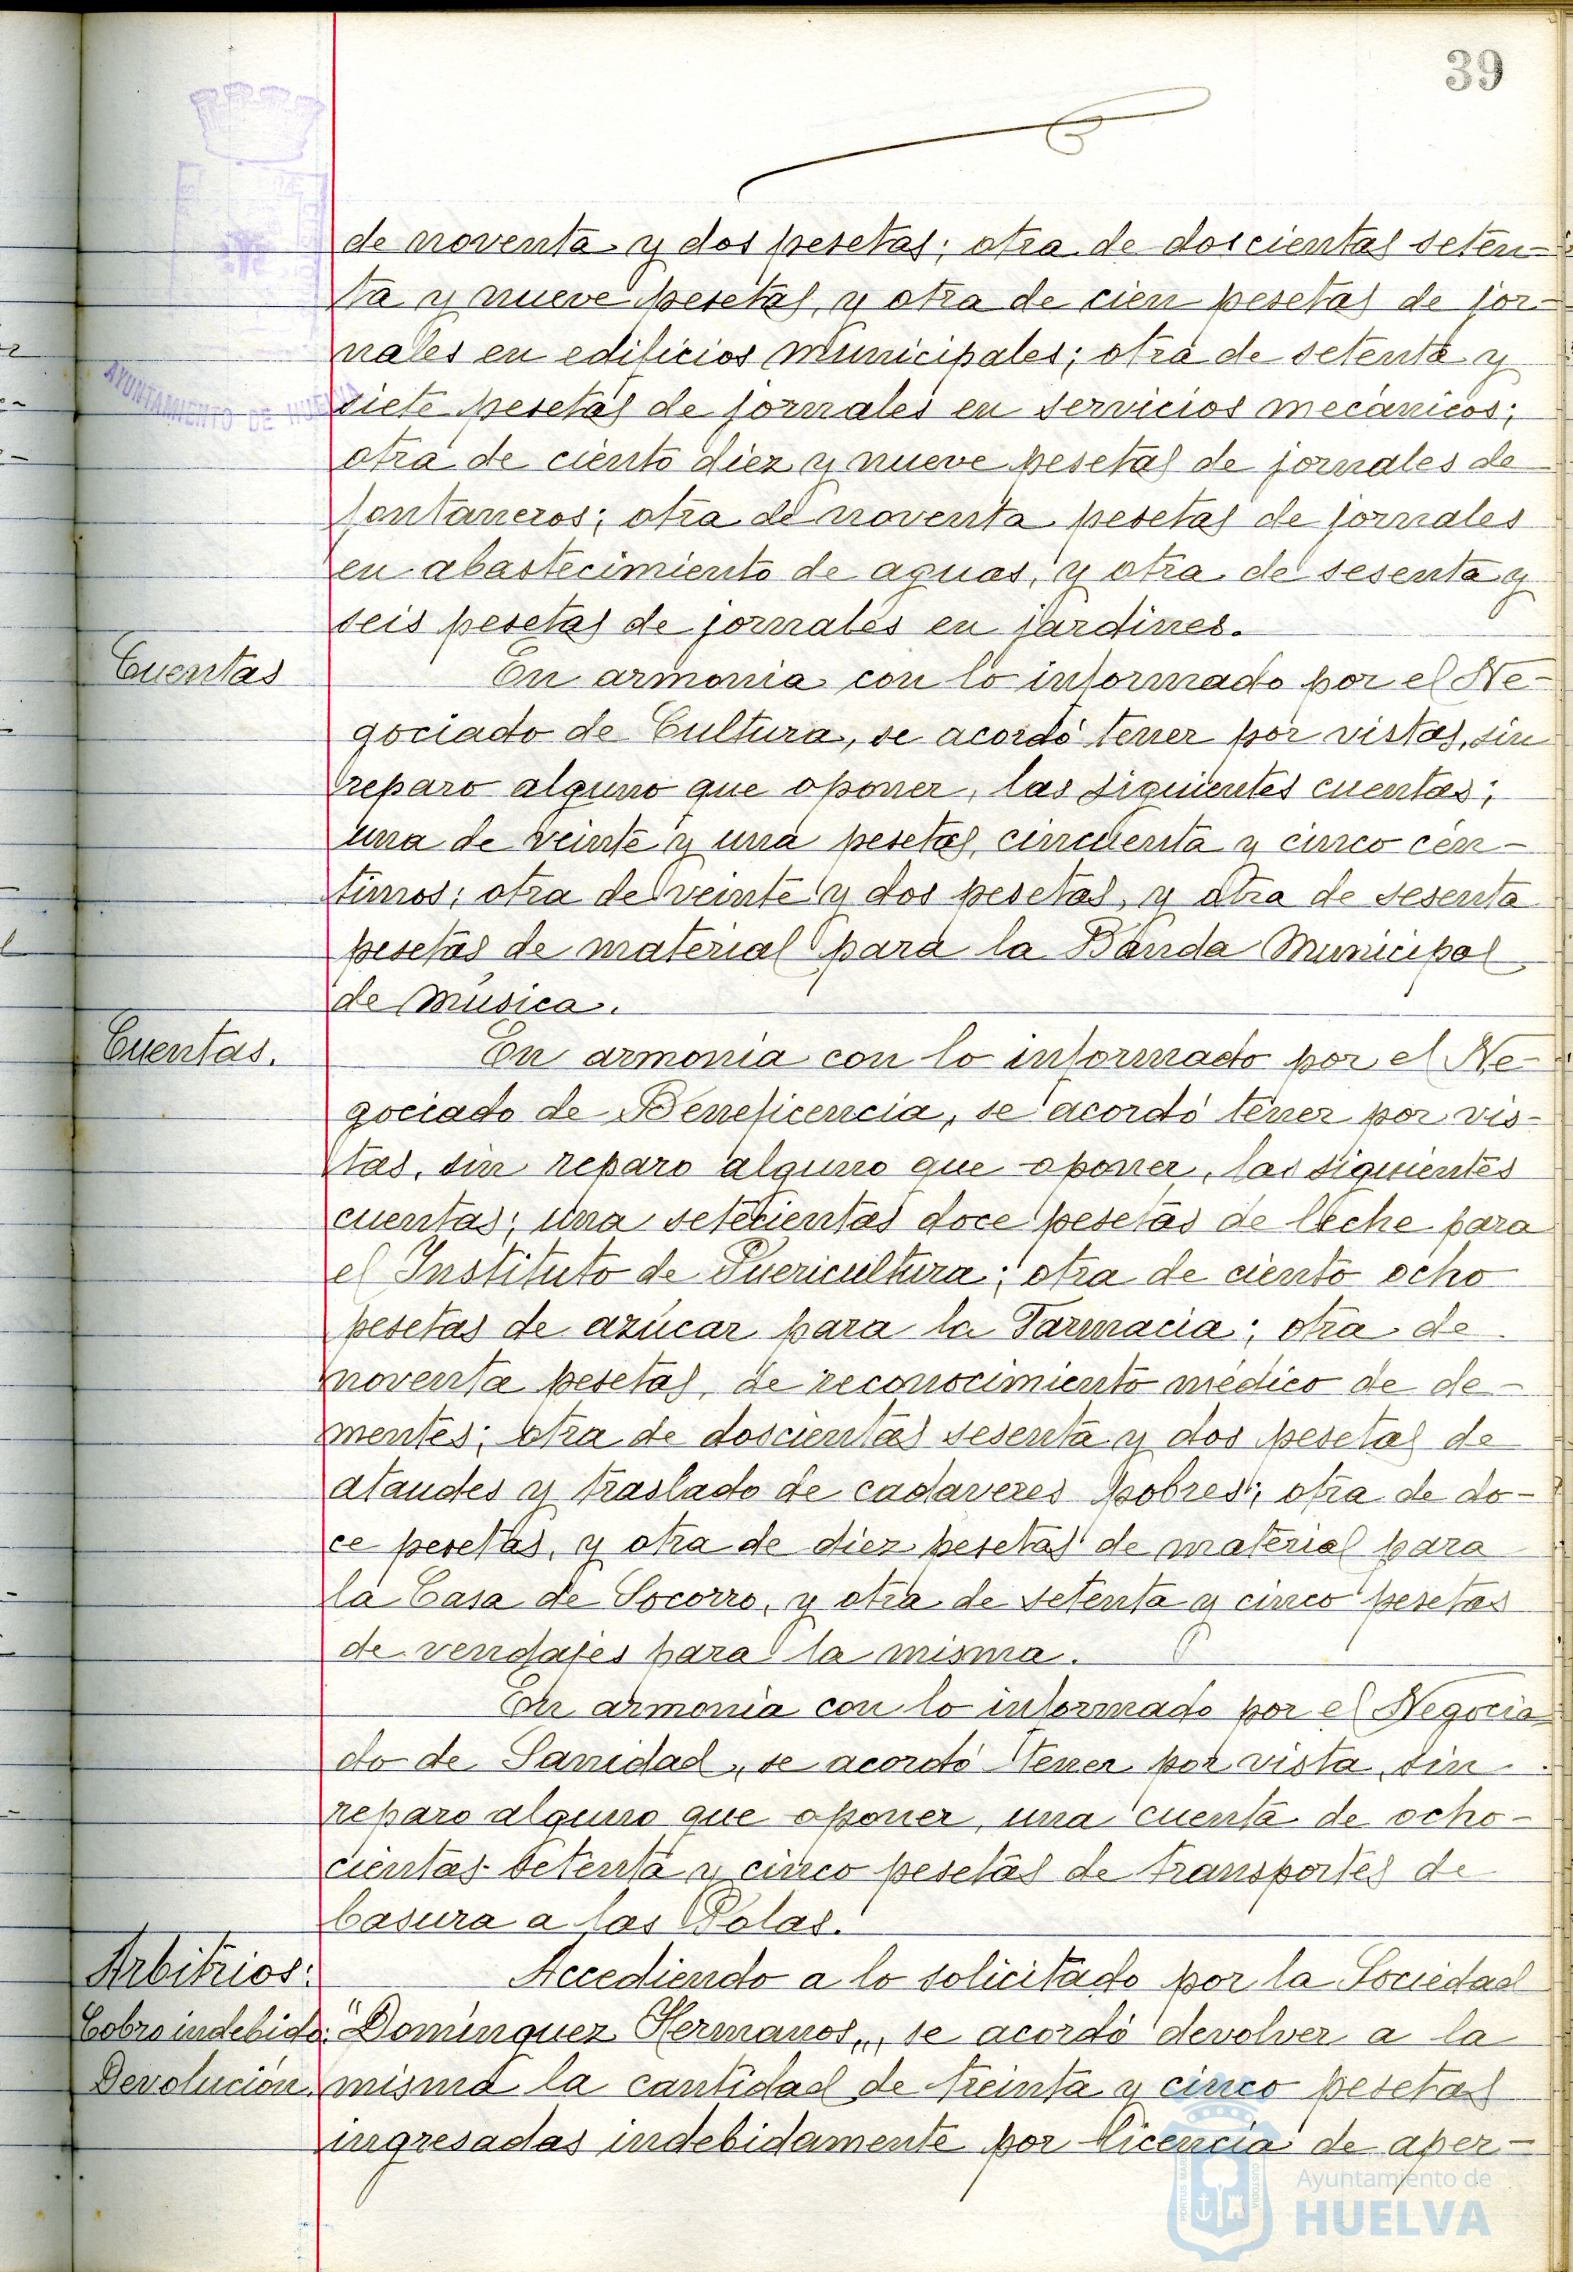 39
de noventa y dos pesetas; otra de doscientas seten-
ta y nueve pesetas, y otra de cien pesetas de jor-
nales en edificios municipales; otra de setenta y
siete pesetas de jornales en servicios mecánicos;
otra de ciento diez y nueve pesetas de jornales de
fontaneros; otra de noventa pesetas de jornales
en abastecimiento de aguas, y otra de sesenta y
seis pesetas de jornales en jardines.
Cuentas
En armonia con lo informado por el Ne-
gociado de Cultura, se acordó tener por vistas, sin
reparo alguno que oponer, las siguientes cuentas;
una de veinte y una pesetas, cincuenta y cinco cén-
timos; otra de veinte y dos pesetas, y otra de sesenta
pesetas de material para la Banda Municipal
de Música.
Cuentas.
En armonia con lo informado por el Ne-
gociado de Beneficencia, se acordó tener por vis-
tas, sin reparo alguno que oponer, las siguientes
cuentas; una setecientas doce pesetas de leche para
el Instituto de Puericultura; otra de ciento ocho
pesetas de azúcar para la Farmacia; otra de
noventa pesetas, de reconocimiento médico de de-
mentes; otra de doscientas sesenta y dos pesetas de
ataudes y traslado de cadaveres pobres; otra de do-
ce pesetas, y otra de diez pesetas de material para
la Casa de Socorro, y otra de setenta y cinco pesetas
de vendajes para la misma.
En armonia con lo informado por el Negocia
do de Sanidad, se acordó tener por vista, sin
reparo alguno que oponer, una cuenta de ocho-
cientas setenta y cinco pesetas de transportes de
basura a las Polas.
Arbitrios:
Cobro indebido:
Devolución.
Accediendo a lo solicitado por la Sociedad
"Domínguez Hermanos", se acordó devolver a la
misma la cantidad de treinta y cinco pesetas
ingresadas indebidamente por licencia de aper-
AYUNTAMIENTO DE HUELVA
Ayuntamiento de
HUELVA